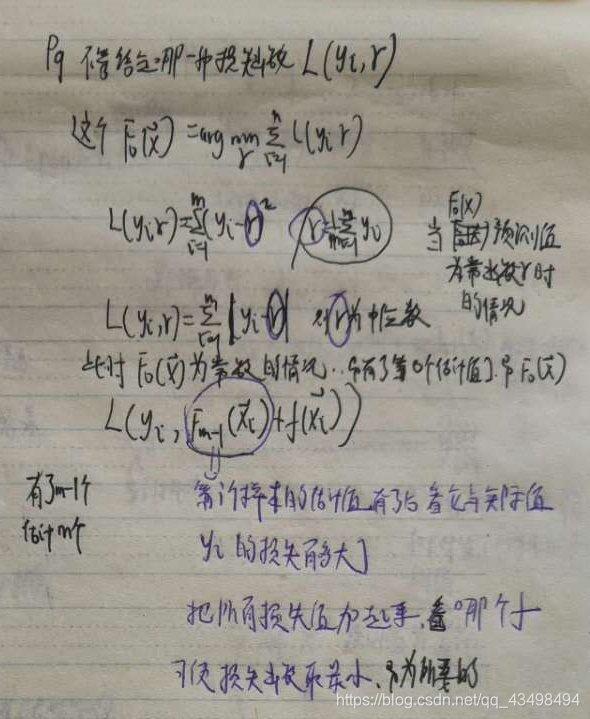 P9 不管给定哪一种损失函数 L(yi,r)
这个 F₀(x⃗) = arg min_r Σ_{i=1}^n L(yi r)
L(yi r) = Σ_{i=1}^m (yi-r)² r = 1/m Σ_{i=1}^m yi
F₀(x)
当 预测值
为常函数r时
的情况
L(yi,r) = Σ_{i=1}^m |yi-r| r为中位数
此时 F₀(x⃗)为常数的情况..
有了第0个估计值 F₀(x⃗)
L(yi, F_{m-1}(x⃗i)+f(x⃗i))
有了m-1个
估计m个
第i个样本的估计值 有了后 看它与实际值
yi 的损失有多大
把所有损失值加起来, 看哪个f
可使损失函数取最小, 为所要的
https://blog.csdn.net/qq_43498494